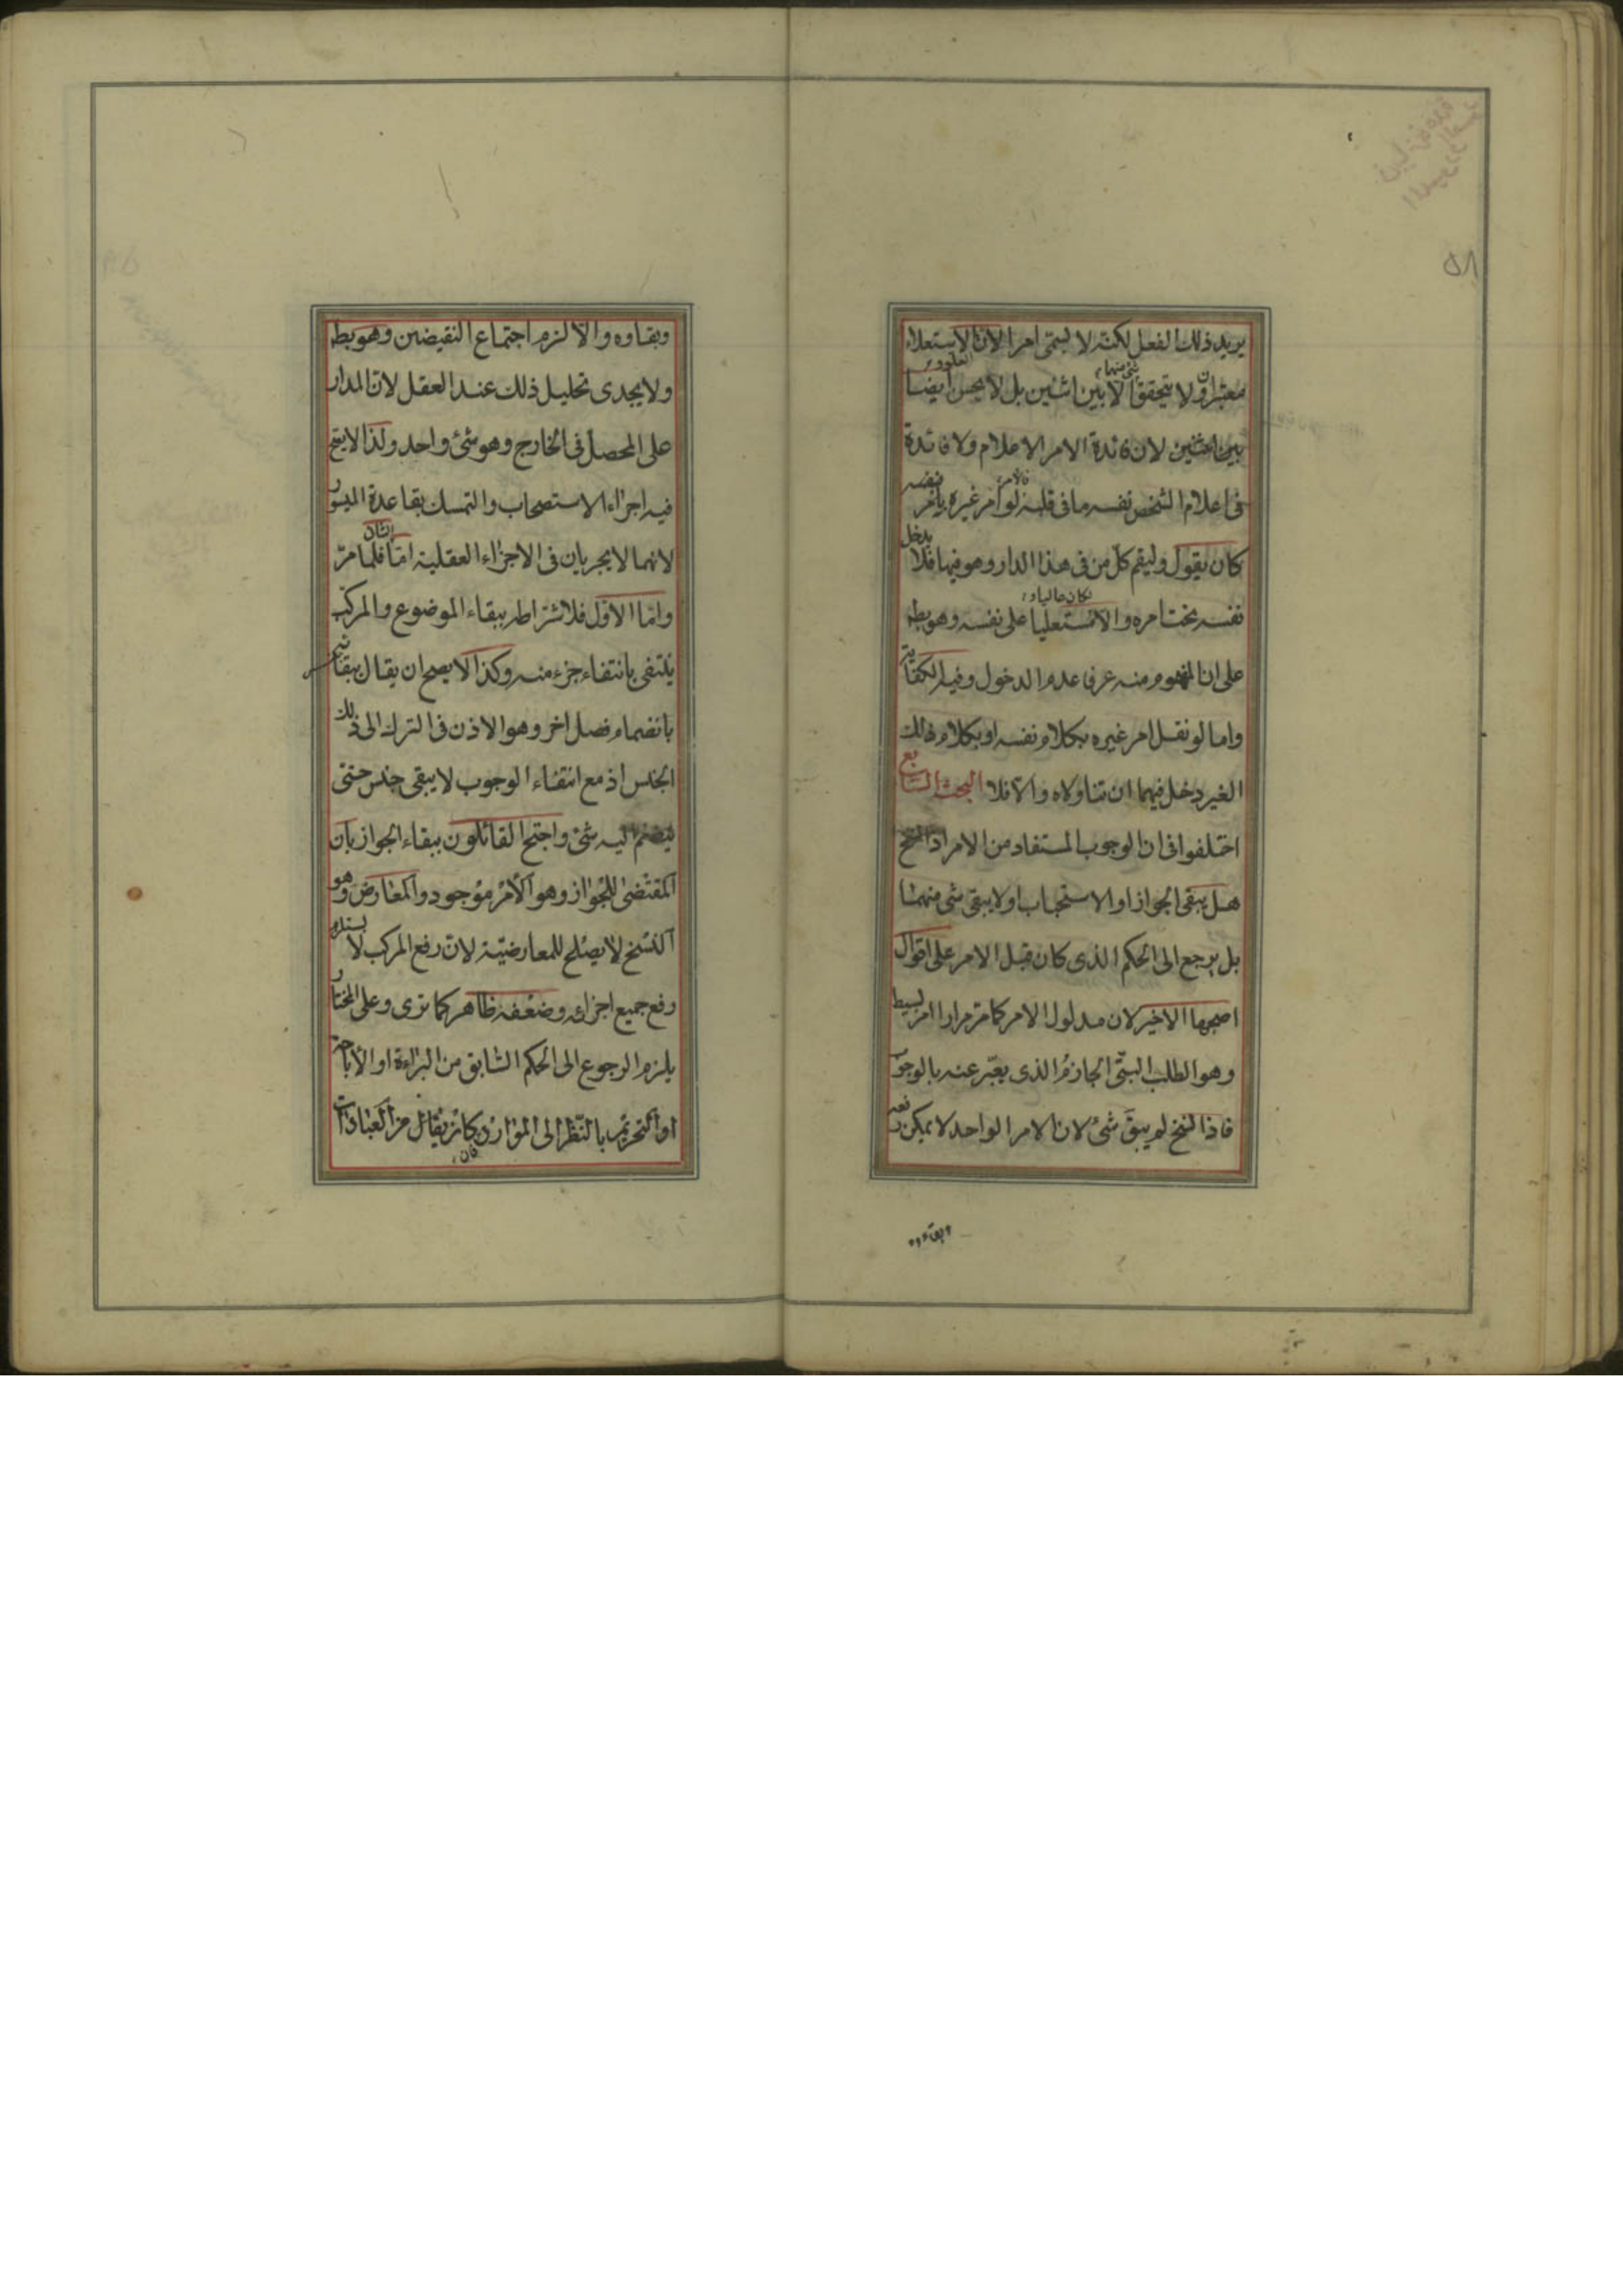 يريد ذلك الفعل لكنّه لا يسمّى امرا لانّ الاستعلاء
العلوو
معتبران ولا يتحقق شئ منهما الا بين اثنين بل لا يحسن ايضا
بين اثنين لان فائدة الامر الاعلام ولا فائدة
فى اعلام الشخص نفسه ما فى قلبه فالامر لو امر غيره بامر نفسه
كان يقول وليقم كلّ من فى هذا الدار وهو فيها فلا يدخل
نفسه تحت امره والا لكان عاليا و مستعليا على نفسه وهو بط
على ان المفهوم منه عرفا عدم الدخول وفيه الكفاية
واما لو نقل امر غيره بكلام نفسه او بكلام ذلك
الغير دخل فيهما ان تناولاه والّا فلا البحث السابع
اختلفوا فى ان الوجوب المستفاد من الامر اذا نسخ
هل يبقى الجواز او الاستحباب او لا يبقى شئ منهما
بل يرجع الى الحكم الذى كان قبل الامر على اقوال
اصحها الاخير لان مدلول الامر كما مر مرارا امر بسيط
وهو الطلب البتّى الجازم الذى يعبّر عنه بالوجوب
فاذا نسخ لم يبق شئ لان الامر الواحد لا يمكن رفعه
وبقاءه
وبقاوه والّا لزم اجتماع النقيضين وهو بط
ولا يجدى تحليل ذلك عند العقل لانّ المدار
على المحصل فى الخارج وهو شئ واحد ولذا لا يتم
فيه اجراء الاستصحاب والتمسك بقاعدة الميسور
لانهما لا يجريان فى الاجزاء العقلية امّا الثانى فلما مرّ
وامّا الاوّل فلاشتراطه ببقاء الموضوع والمركب
ينتفى بانتفاء جزء منه وكذا لا يصح ان يقال ببقاء
بانضمام فصل اخر وهو الاذن فى الترك الى ذلك
الجنس اذ مع انتفاء الوجوب لا يبقى جنس حتى
ينضم اليه شئ واحتج القائلون ببقاء الجواز بان
المقتضى للجواز وهو الامر موجود والمعارض وهو
النسخ لا يصلح للمعارضيّة لانّ رفع المركب لا يستلزم
رفع جميع اجزائه وضعفه ظاهر كما ترى وعلى المختار
يلزم الرجوع الى الحكم السّابق من البراءة او الاباحة
او التحريم بالنّظر الى الموارد كان يقال من العبادات
فان